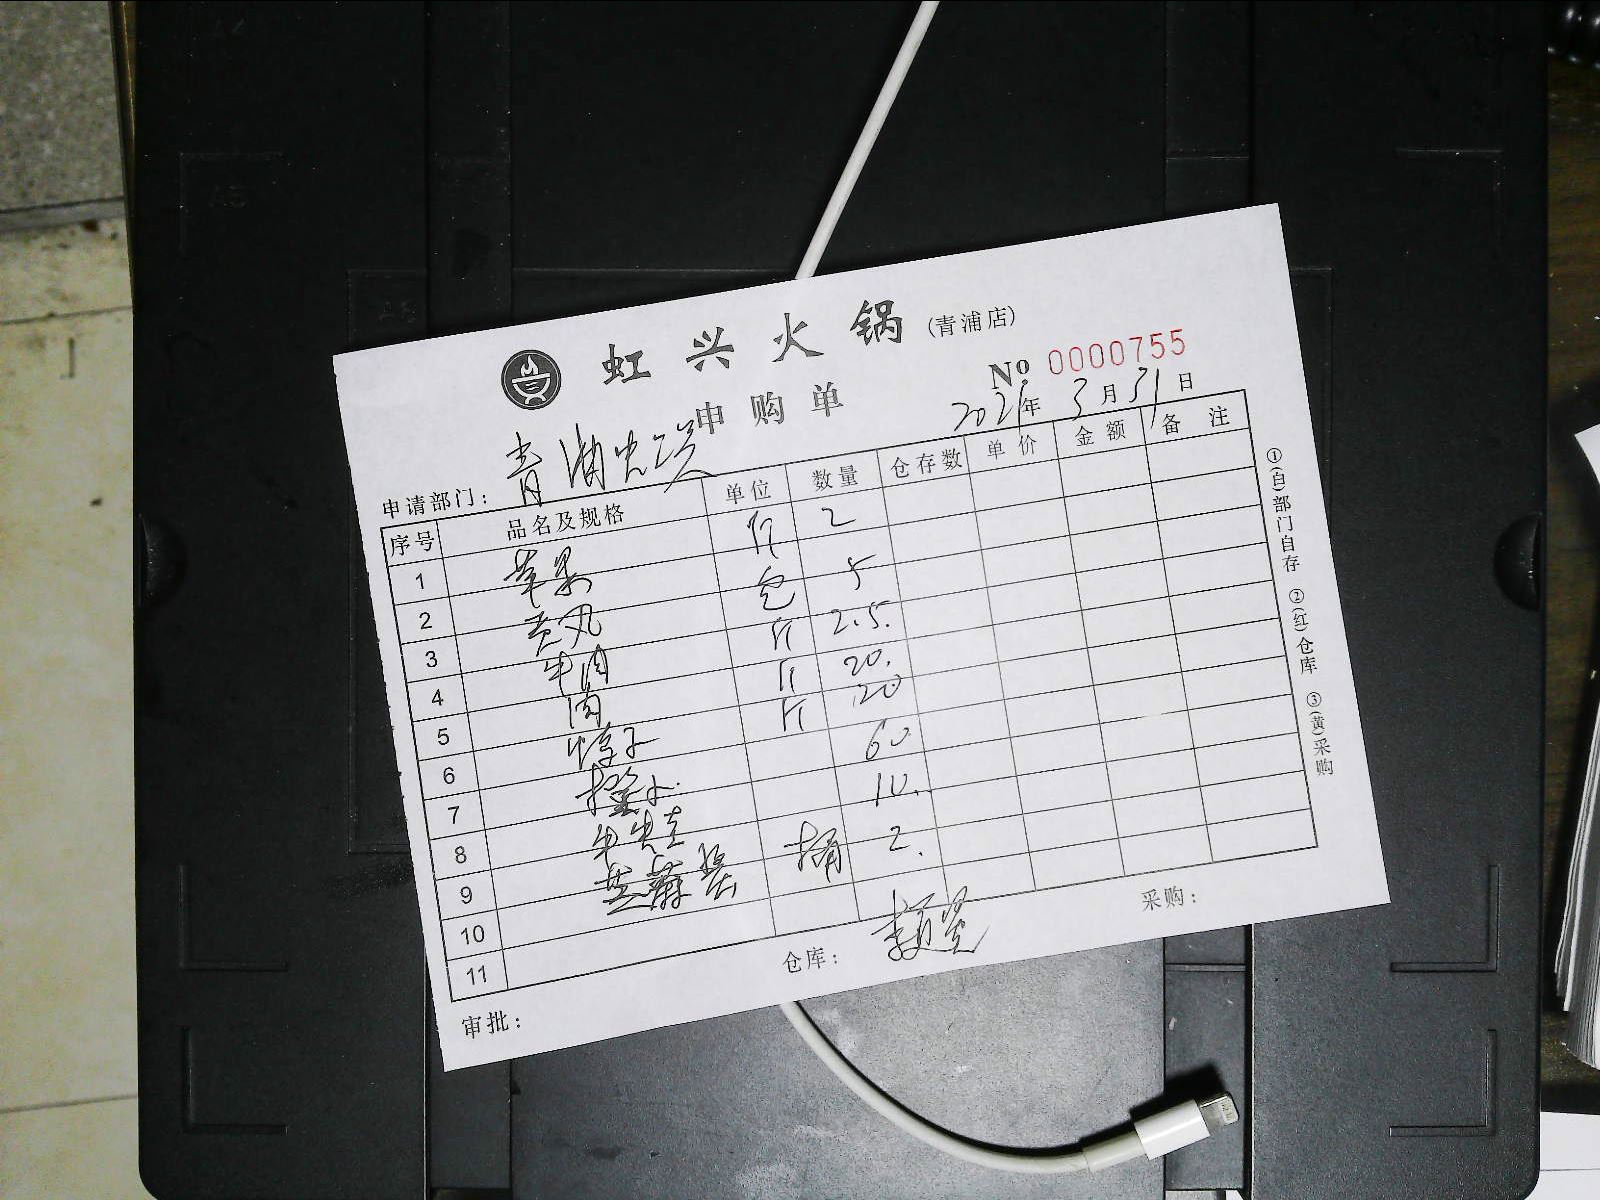 虹兴火锅(青浦店)
申购单
No 0000755
2021年3月31日
申请部门：青浦
序号 品名及规格 单位 数量 仓存数 单价 金额 备注
1 苹果 斤 2
2 包 5
3 牛肉 斤 2.5.
4 肉 斤 20.
5 斤 120
6 60
7 10.
8 芝麻酱 桶 2.
9
10
11
审批： 仓库： 采购：
①(白)部门自存 ②(红)仓库 ③(黄)采购